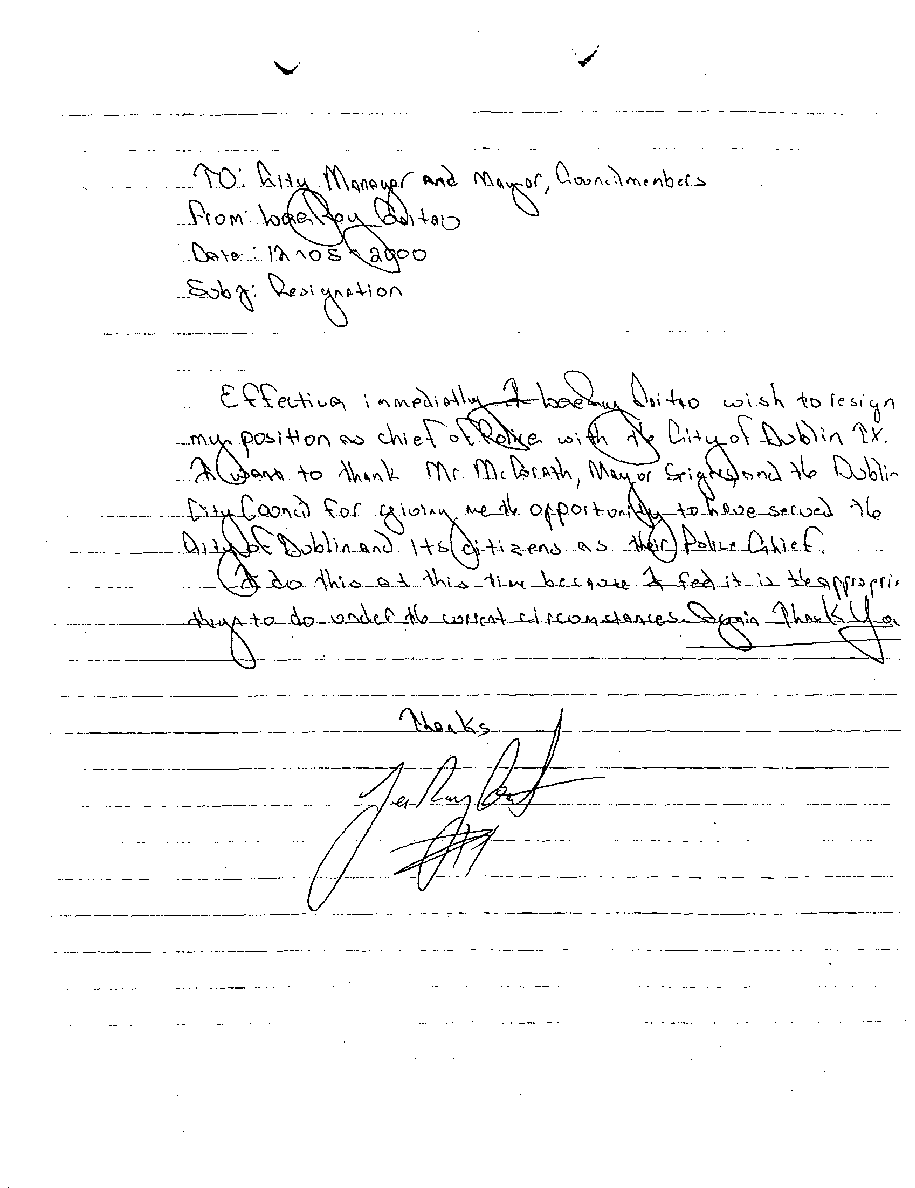 TO: City Manager and Mayor, Councilmembers
From: Lee Ray
Date: 12-05-2000
Subj: Resignation
Effective immediatly I Lee Ray wish to resign
my position as chief of Police with the City of Dublin TX.
I want to thank Mr. McGrath, Mayor and the Dublin
City Council for giving me the opportunity to have served the
City of Dublin and its citizens as their Police Chief.
I do this at this time because I feel it is the appropri
to do under the current circumstances. Again Thank You
Thanks
Lee Ray